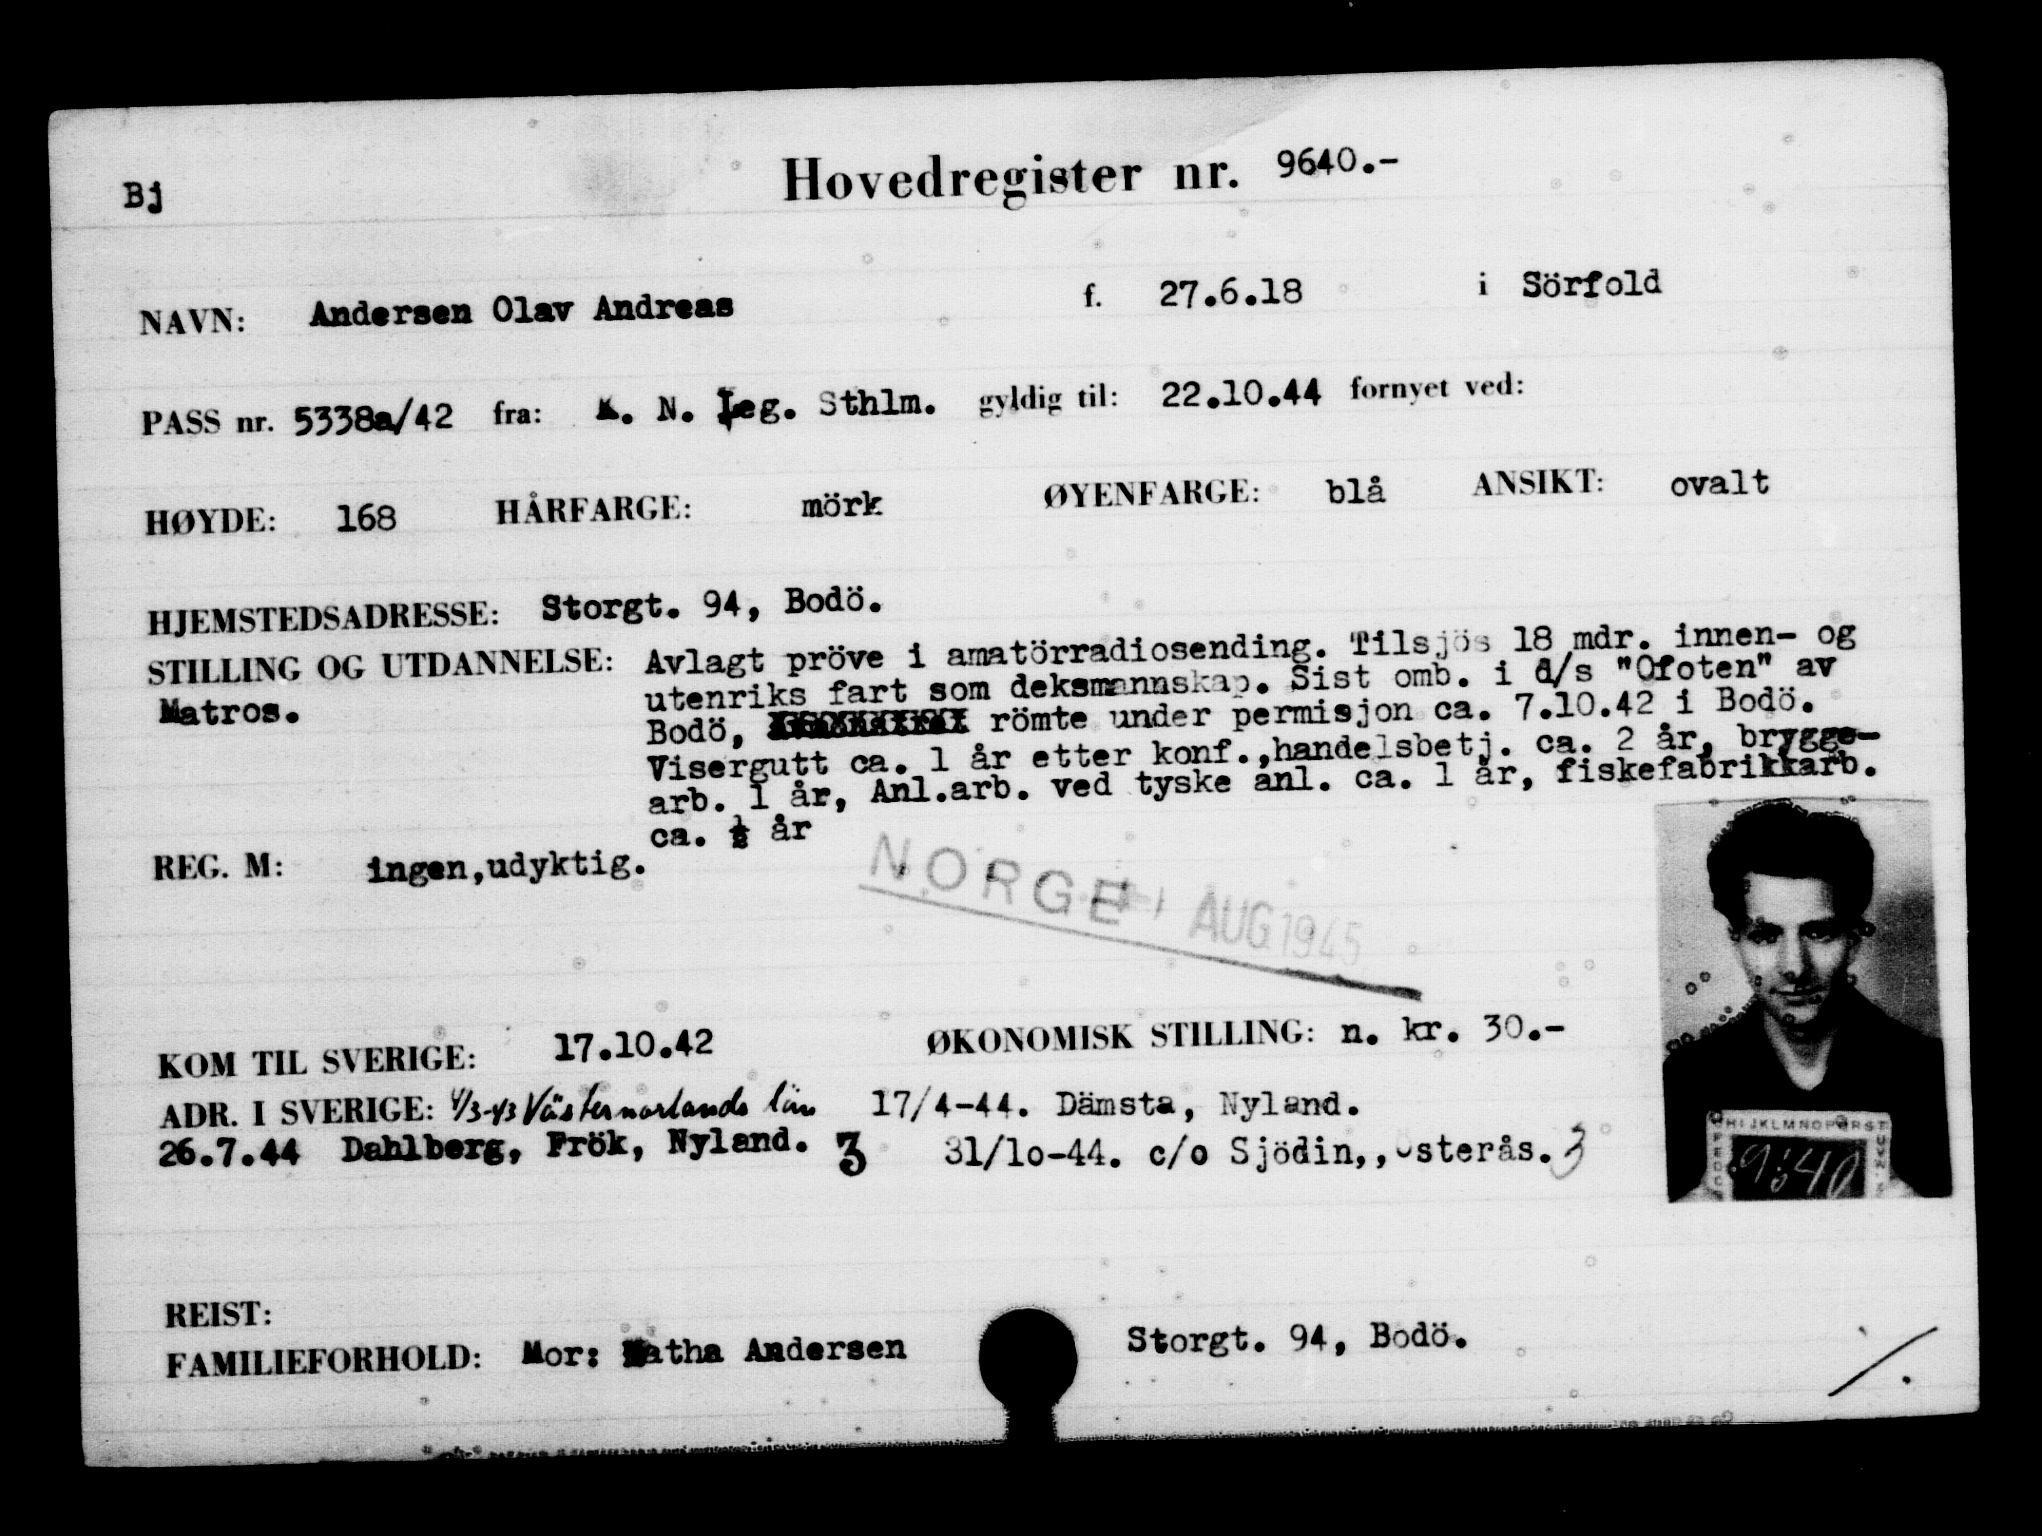 Bj
Hovedregister nr. 9640.-
NAVN: Andersen Olav Andreas f. 27.6.18 i Sörfold
PASS nr. 5338a/42 fra: K. N. Leg. Sthlm. gyldig til: 22.10.44 fornyet ved:
HØYDE: 168 HÅRFARGE: mörk ØYENFARGE: blå ANSIKT: ovalt
HJEMSTEDSADRESSE: Storgt. 94, Bodö.
STILLING OG UTDANNELSE: Avlagt pröve i amatörradiosending. Tilsjös 18 mdr. innen- og
Matros. utenriks fart som deksmannskap. Sist omb. i d/s "Ofoten" av
Bodö, römte under permisjon ca. 7.10.42 i Bodö.
Visergutt ca. 1 år etter konf.,handelsbetj. ca. 2 år, brygge-
arb. 1 år, Anl.arb. ved tyske anl. ca. 1 år, fiskefabrikkarb.
ca. ½ år
REG. M: ingen,udyktig.
NORGE AUG 1945
KOM TIL SVERIGE: 17.10.42 ØKONOMISK STILLING: n. kr. 30.-
ADR. I SVERIGE: 4/3-43 Västernorlands län 17/4-44. Dämsta, Nyland.
26.7.44 Dahlberg, Frök, Nyland. 3 31/10-44. c/o Sjödin,, Österås. 3
HIJKLMNOPQRST
9640
REIST:
FAMILIEFORHOLD: Mor: Andersen Storgt. 94, Bodö.